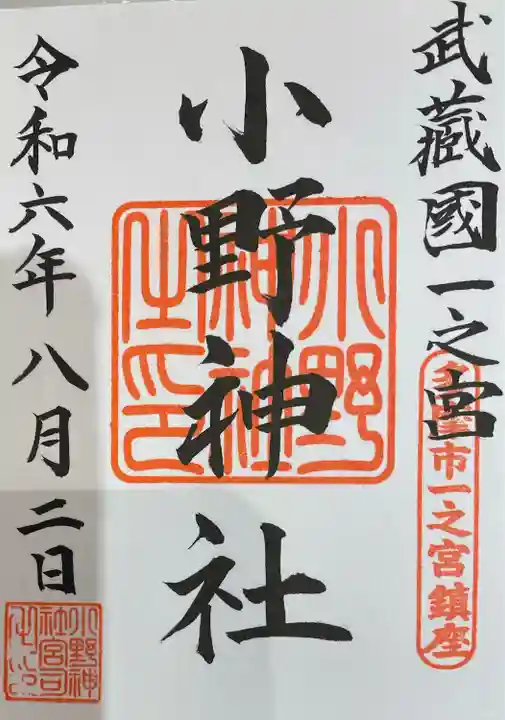 武蔵國一之宮
多摩市一之宮鎮座
小野神社
小野
神社
之印
令和六年八月二日
小野神
社宮司
之印